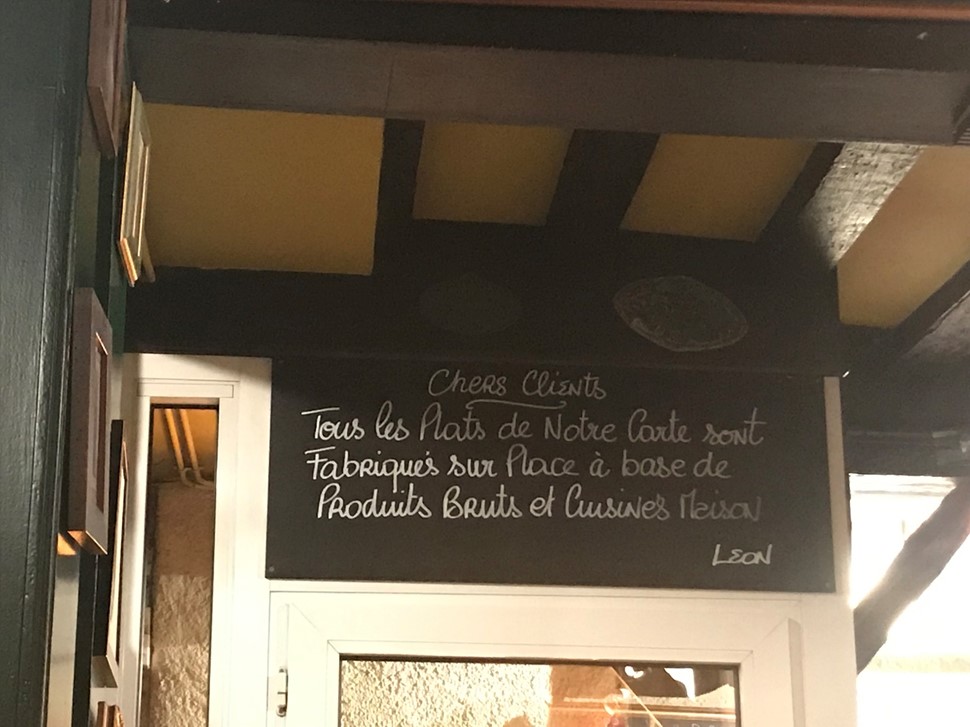 Chers Clients
Tous les Plats de Notre Carte sont
Fabriqués sur Place à base de
Produits Bruts et Cuisinés Maison
LEON